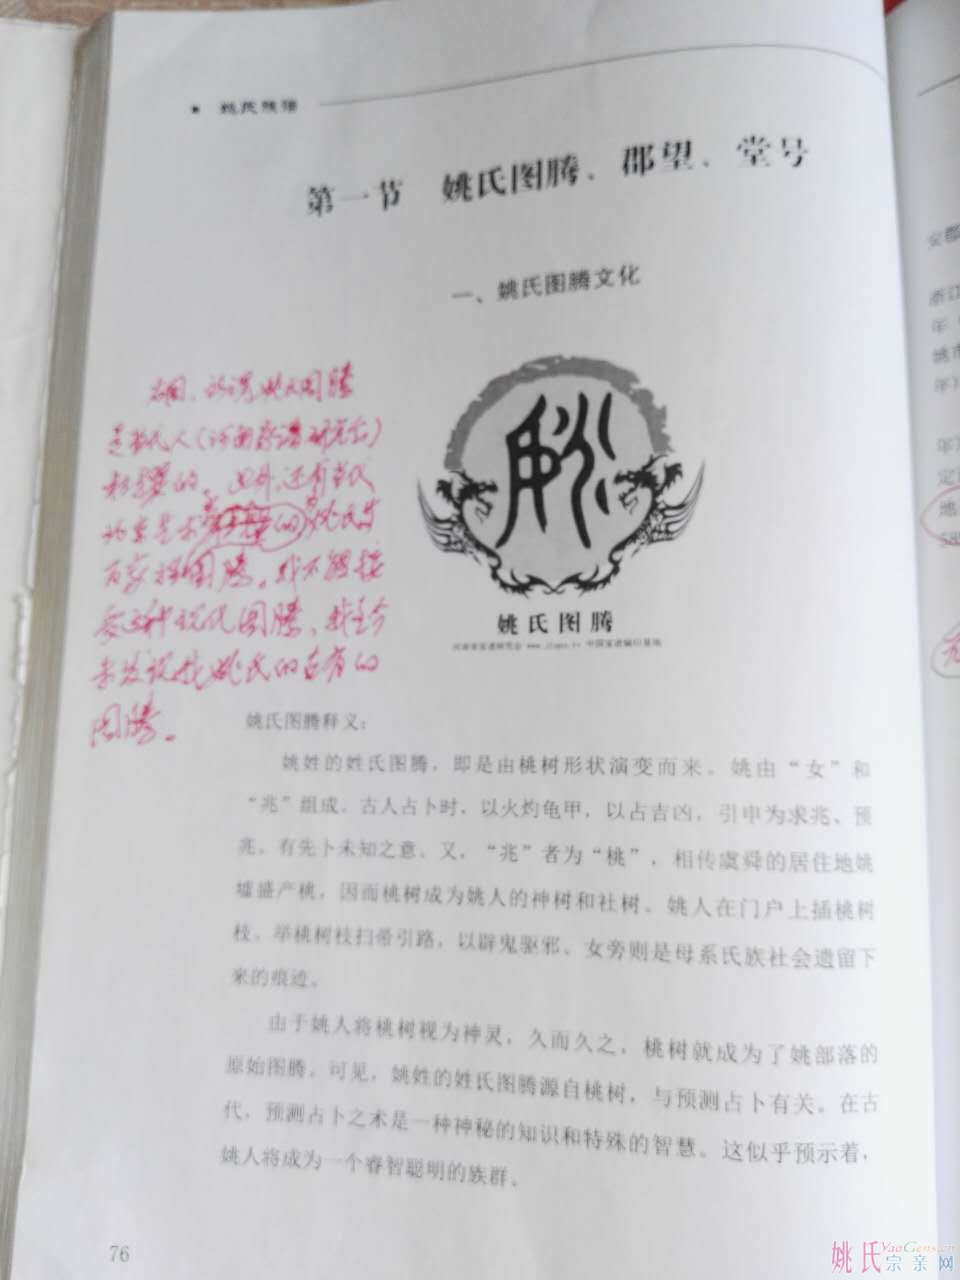 姚氏族谱
第一节 姚氏图腾、郡望、堂号
一、姚氏图腾文化
姚氏图腾
河南省家谱研究会 中国家谱编印基地
右图、 姚氏图腾
是当代人(河南家谱研究会)
的。另外,还有当代
的 姚氏等
百家姓图腾。我不能接
受这种现代图腾,我至今
未发现我姚氏的古有的
图腾。
姚氏图腾释义:
姚姓的姓氏图腾,即是由桃树形状演变而来。姚由“女”和
“兆”组成。古人占卜时,以火灼龟甲,以占吉凶,引申为求兆、预
兆。有先卜未知之意。又,“兆”者为“桃”,相传虞舜的居住地姚
墟盛产桃,因而桃树成为姚人的神树和社树。姚人在门户上插桃树
枝。举桃树枝扫帚引路,以辟鬼驱邪。女旁则是母系氏族社会遗留下
来的痕迹。
由于姚人将桃树视为神灵,久而久之,桃树就成为了姚部落的
原始图腾。可见,姚姓的姓氏图腾源自桃树,与预测占卜有关。在古
代,预测占卜之术是一种神秘的知识和特殊的智慧。这似乎预示着,
姚人将成为一个睿智聪明的族群。
76
姚氏YaoGens.cn
宗亲网